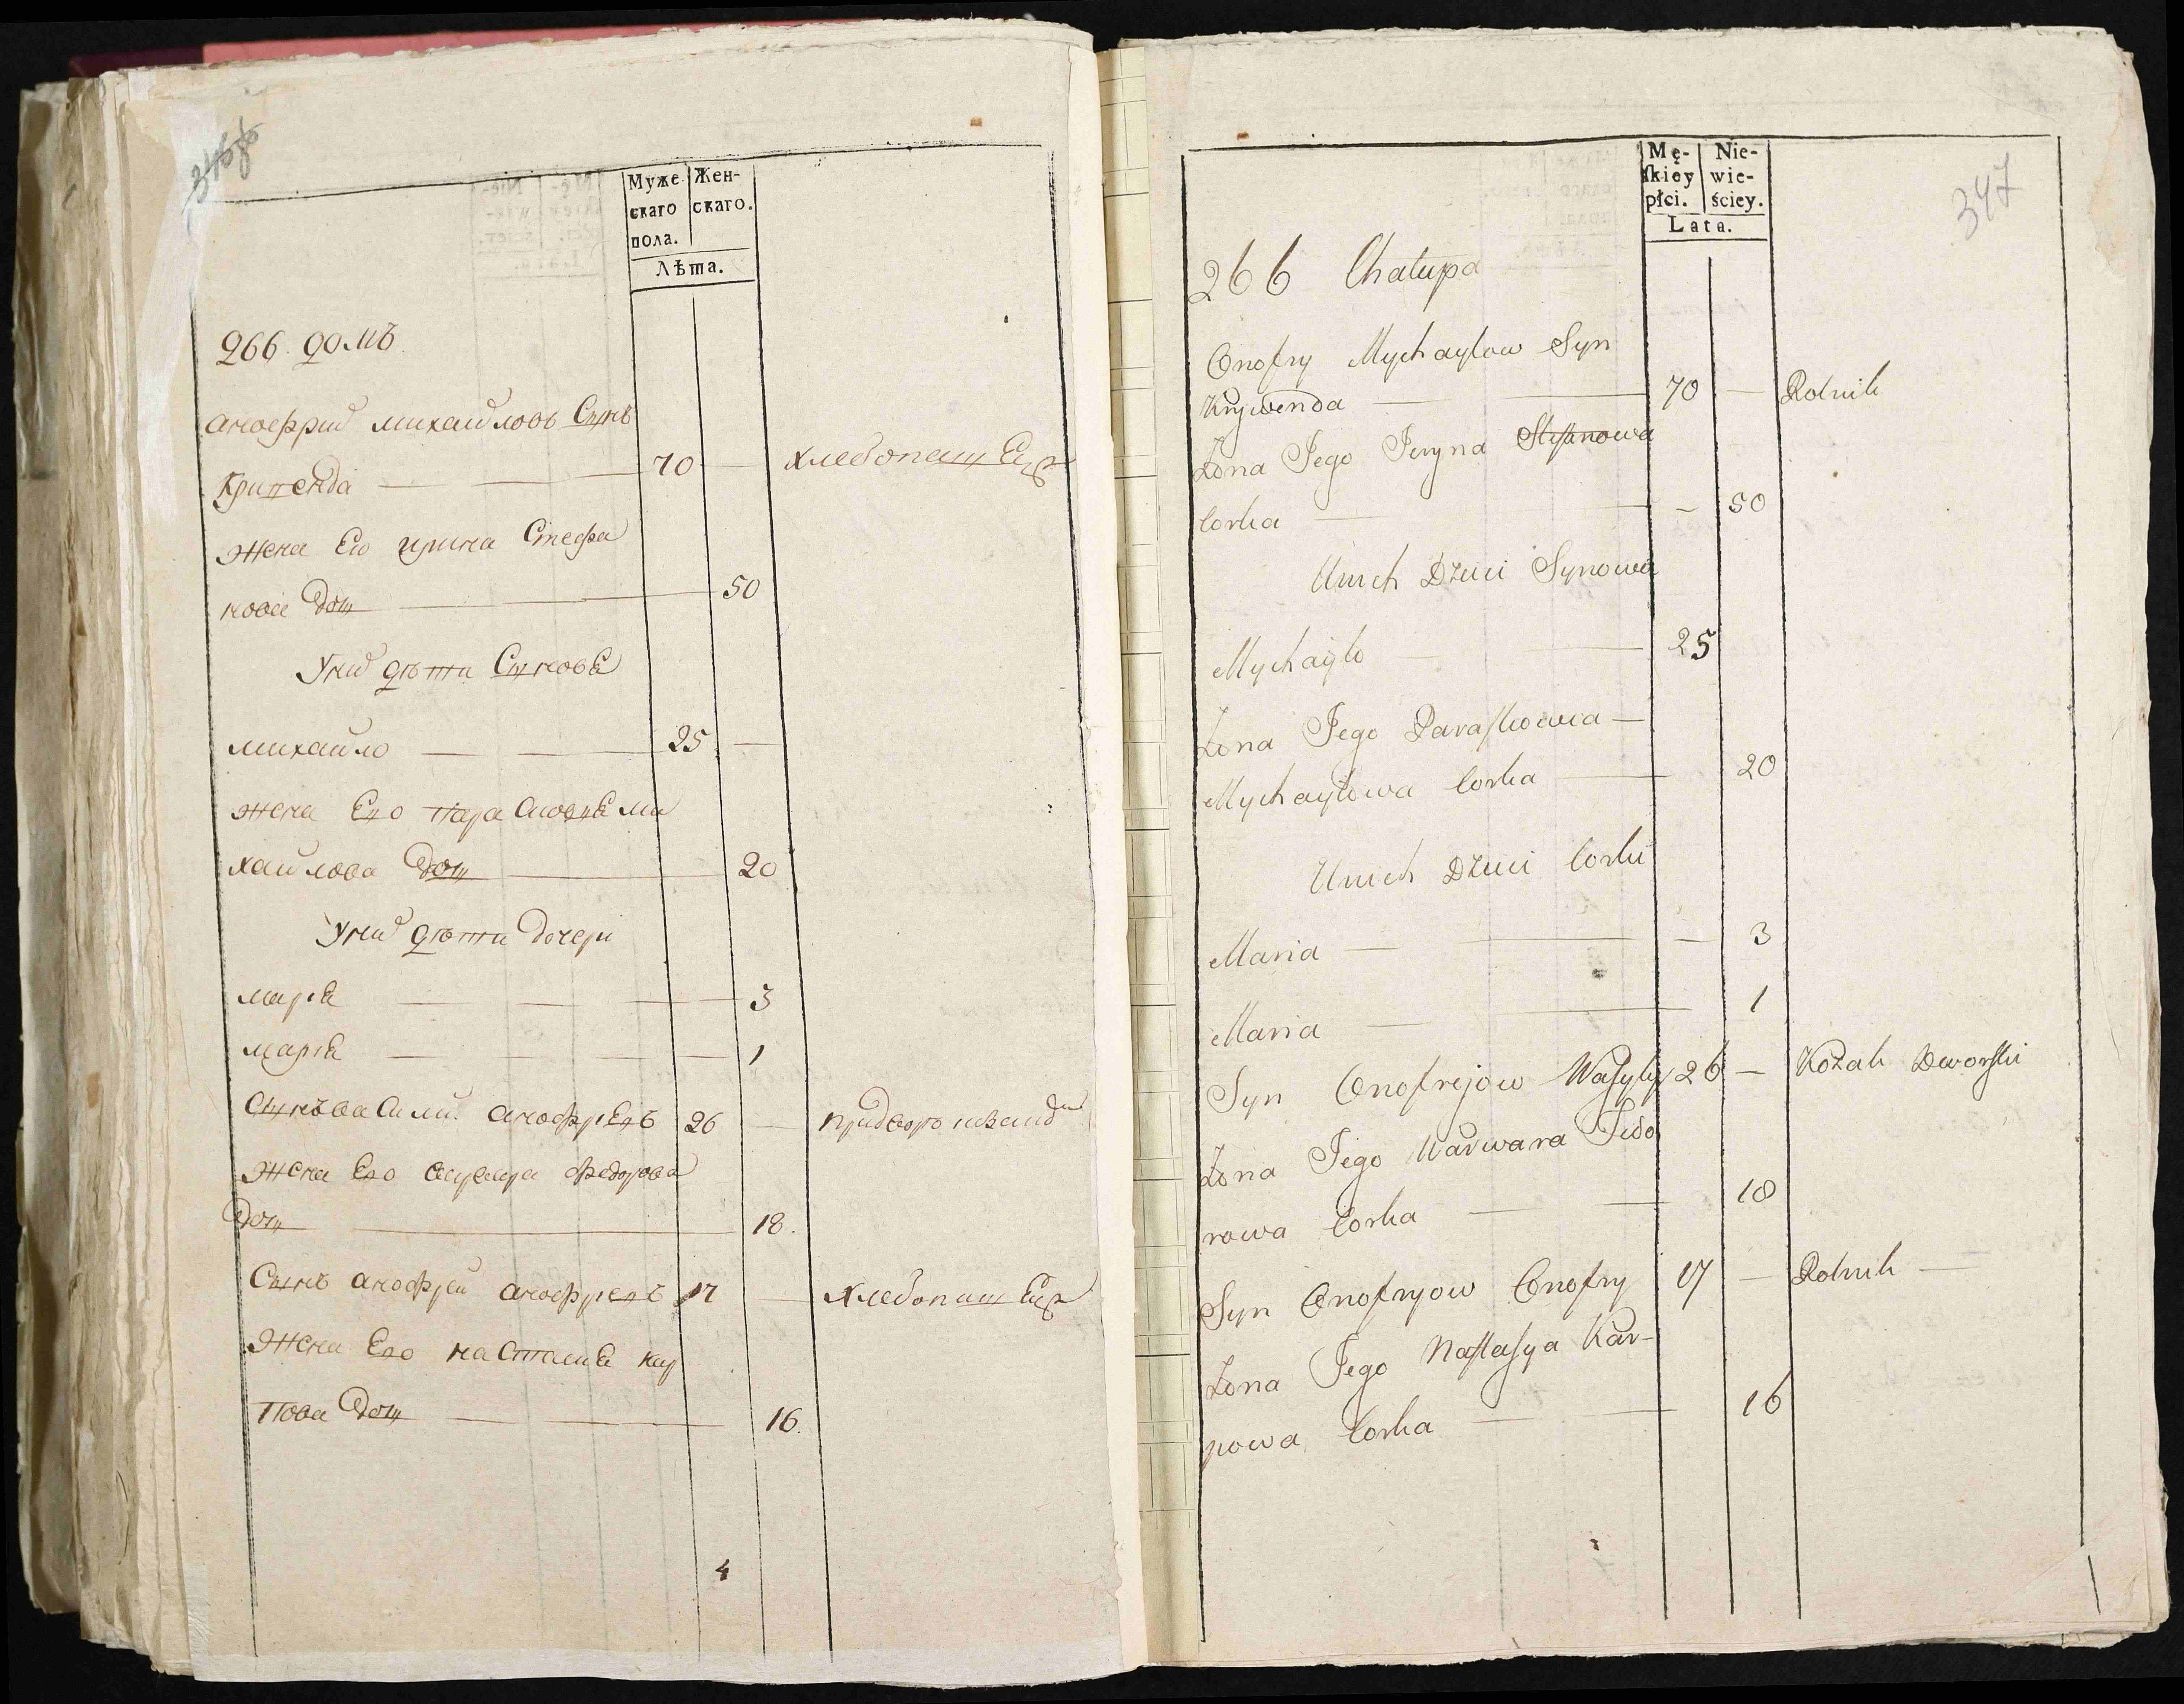 Муже
скаго
пола.
Жен-
скаго.
Лѣта.
266. домъ
анофрий михайловъ Сынъ
Кривенда — 70 — хлебопашецъ
жена Его ирина Стефа
нова дочь — 50
Уних дѣти Сыновя
михайло — 25 —
жена Его Парасковея ми
хайлова дочь — 20
Уних дѣти дочери
мария — 3
мария — 1
Сынъ васили анофриевъ 26 —
жена Его федорова
дочь — 18.
Сынъ анофрей анофриевъ 17 — хлебопашецъ
Жена Его настасия кар
пова дочь — 16.
4
347
Mę-
skiey
płci.
Nie-
wie-
ściey.
Lata.
266 Chałupa
Onofry Mychayłow Syn
Krywenda — 70 — Rolnik
Zona Jego Jeryna Stefanowa
Corka — 50
Unich Dzieci Synowie
Mychayło — 25
Zona Jego Paraskowia —
Mychayłowa Corka — 20
Unich Dzieci Corki
Maria — 3
Maria — 1
Syn Onofrejow Wasyly 26 — Kozak Dworski
Zona Jego Warwara Fedo
rowa Corka — 18
Syn Onofryow Onofry 17 — Rolnik —
Zona Jego Nastasya Kar-
powa Corka — 16